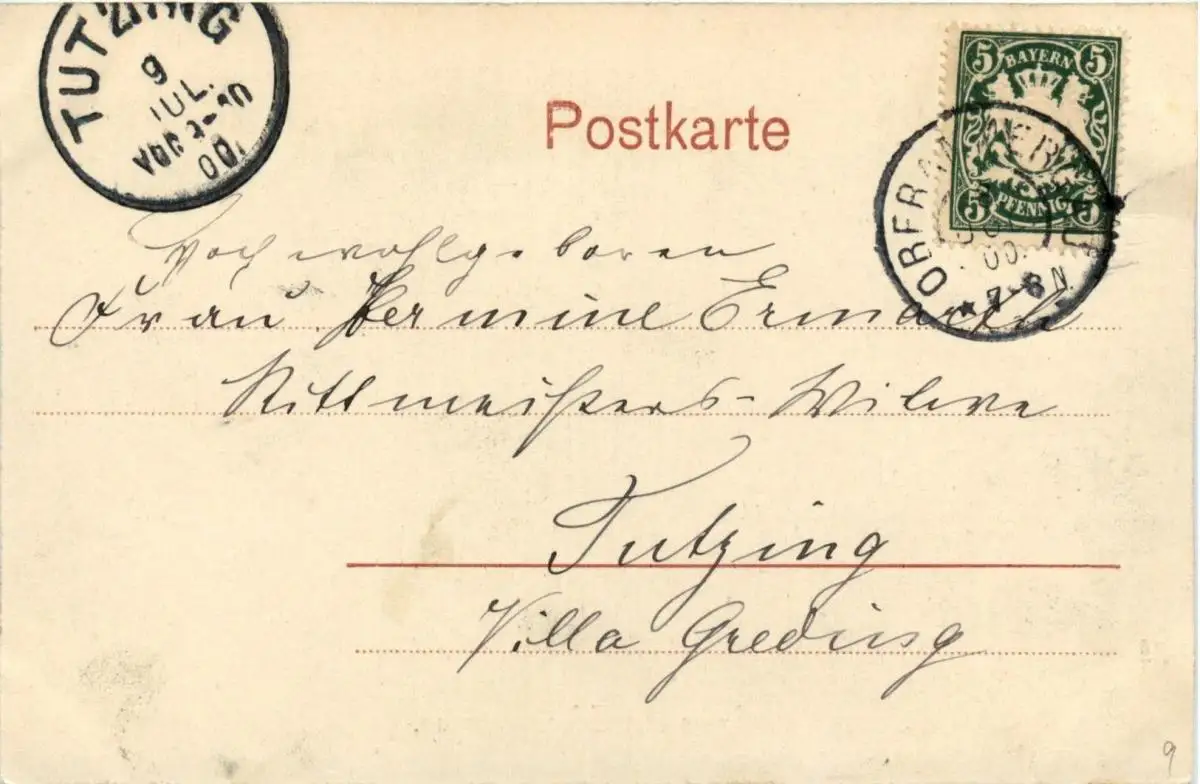 TUTZING
9
JUL.
00.
Postkarte
5 BAYERN 5
5 PFENNIG 5
OBERAMMERGAU
00.
7-8 N
Hochwohlgeboren
Frau Hermine Ermarth
Rittmeisters-Witwe
Tutzing
Villa Greding
9